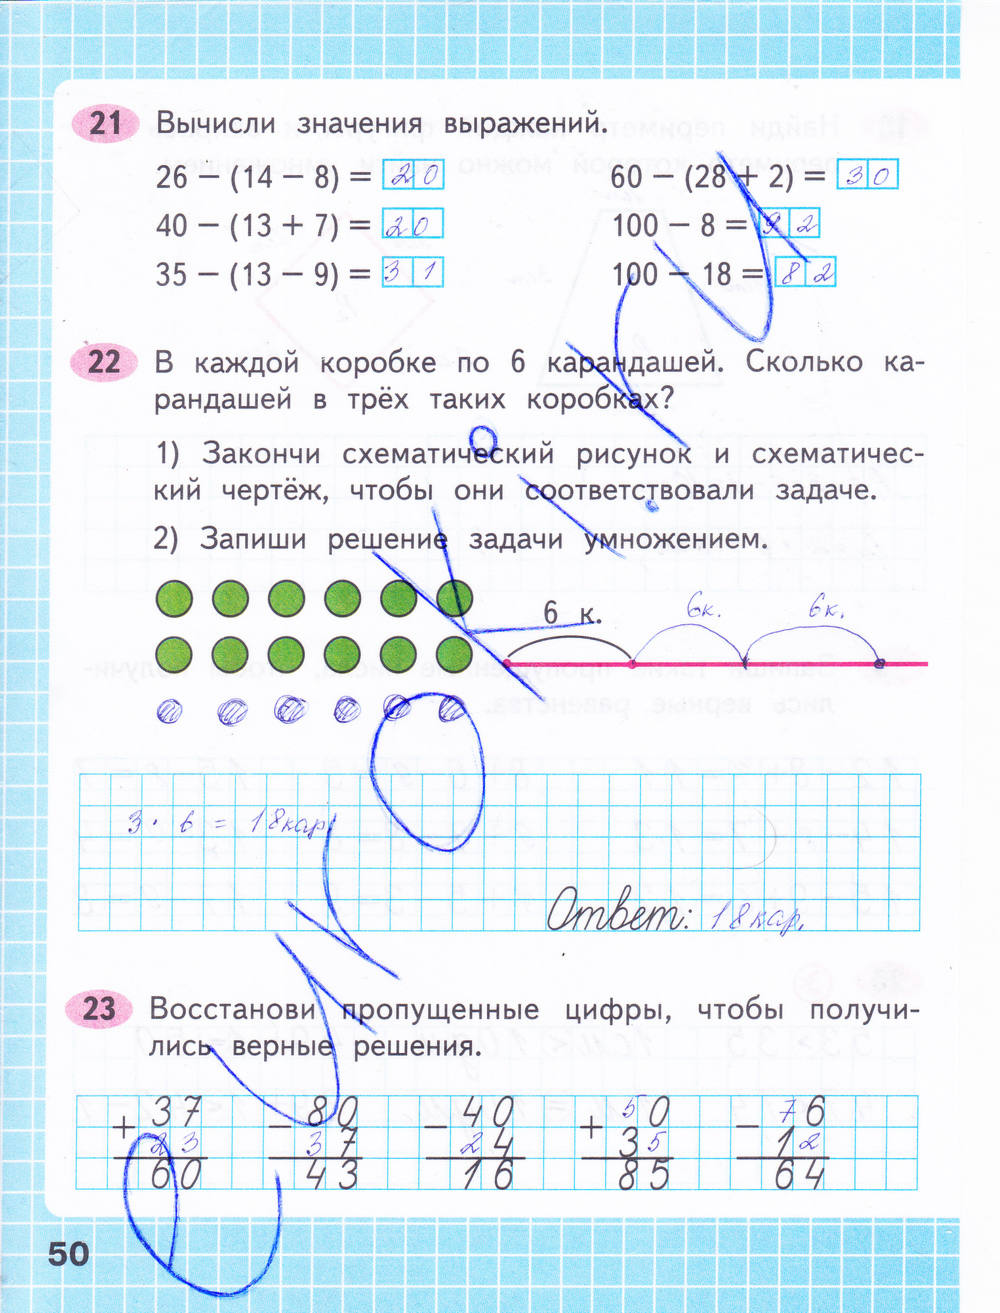 21 Вычисли значения выражений.
26 – (14 – 8) = 20 60 – (28 + 2) = 30
40 – (13 + 7) = 20 100 – 8 = 92
35 – (13 – 9) = 31 100 – 18 = 82
22 В каждой коробке по 6 карандашей. Сколько ка-
рандашей в трёх таких коробках?
1) Закончи схематический рисунок и схематичес-
кий чертёж, чтобы они соответствовали задаче.
2) Запиши решение задачи умножением.
6 к. 6к. 6к.
3 · 6 = 18кар.
Ответ: 18кар.
23 Восстанови пропущенные цифры, чтобы получи-
лись верные решения.
+ 37 – 80 – 40 + 50 – 76
23 37 24 35 12
60 43 16 85 64
50